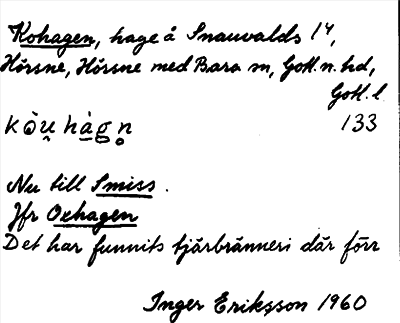 Kohagen, hage å Snauvalds 1⁴,
Hörsne, Hörsne med Bara sn, Gotl. n. hd,
Gotl. l.
kòu̯ hàgn̥ 133
Nu till Smiss.
Jfr Oxhagen
Det har funnits tjärbränneri där förr
Inger Eriksson 1960